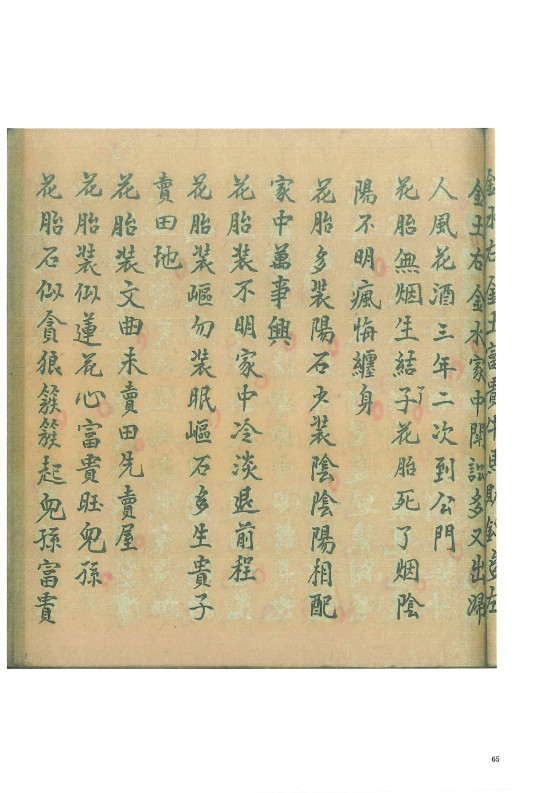 金水右金丑富貴牛馬財錢並左
金丑右金水家中聞訟多又出歸
人風花酒三年二次到公門
花胎無烟生結子花胎死了烟陰
陽不明瘋悔纏身
花胎多裝陽石少裝陰陰陽相配
家中萬事興
花胎裝不明家中冷淡退前程
花胎裝嶇勿裝眠嶇石多生貴子
賣田地
花胎裝文曲未賣田先賣屋
花胎裝似蓮花心富貴旺兒孫
花胎石似貪狼簇簇起兒孫富貴
65